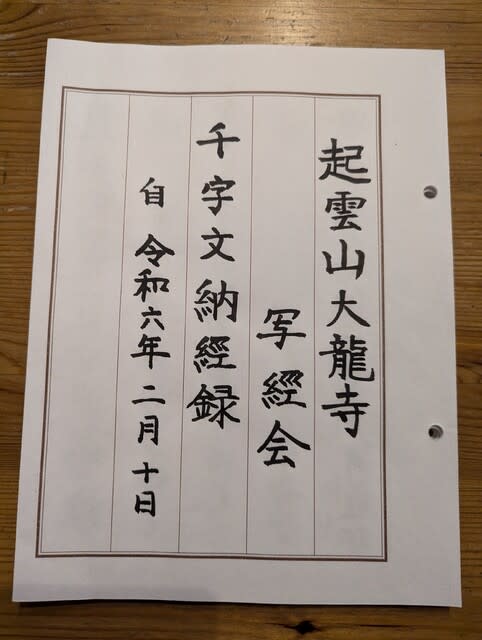 起雲山大龍寺
写經会
千字文納經録
自 令和六年二月十日